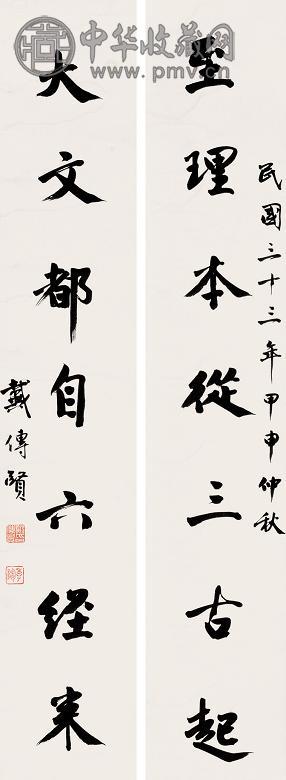 中华收藏网
www.pmv.cn
民國三十三年甲申仲秋
至理本從三古起
大文都自六經来
戴傳賢